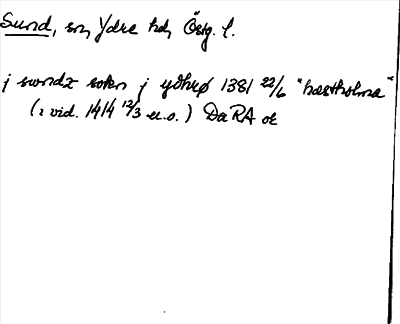 Sund, sn, Ydre hd, Östg. l.
j swndz sokn j ydhrø 1381 22/6 "hæstholma"
(i vid. 1414 12/3 u.o.) DaRA or